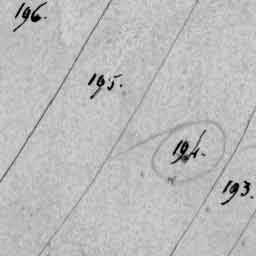 196.
195.
194.
193.